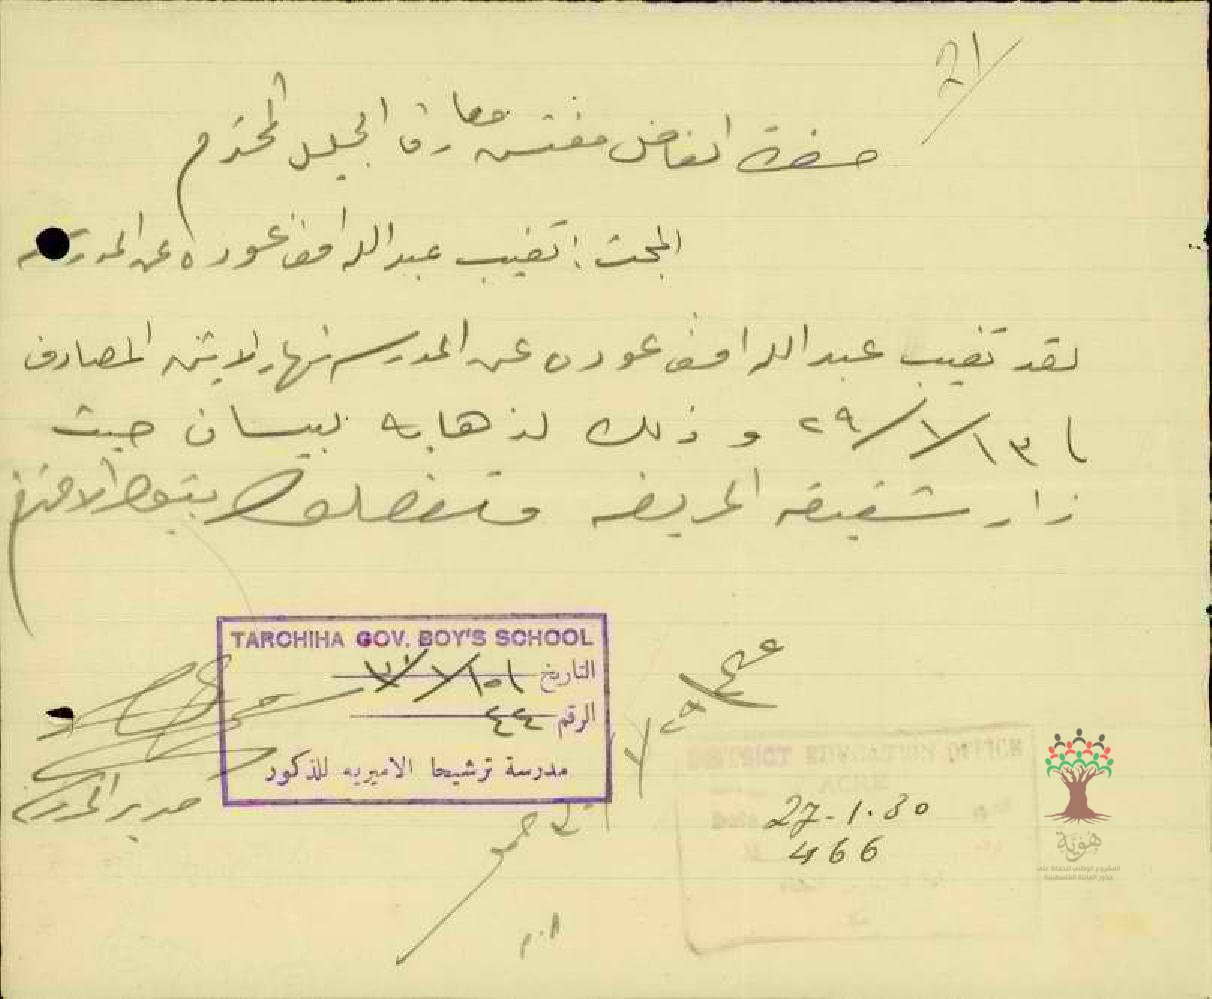 21/
حضرة الفاضل مفتش معارف الجليل المحترم
المبحث: تغيب عبدالله افندي عوده عن المدرسة
لقد تغيب عبدالله افندي عوده عن المدرسه نهار الاثنين المصادف
١٣/١/٢٩ و ذلك لذهابه لبيسان حيث
زار شقيقه المريض وتفضلوا بقبول الاحترام
TARCHIHA GOV. BOY'S SCHOOL
التاريخ
الرقم ٤٤
مدرسة ترشيحا الاميريه للذكور
مدير المدرسة
DISTRICT EDUCATION OFFICE
ACRE
27-1-30
466
هَوِيَّة
المشروع الوطني للحفاظ على
جذور العائلة الفلسطينية